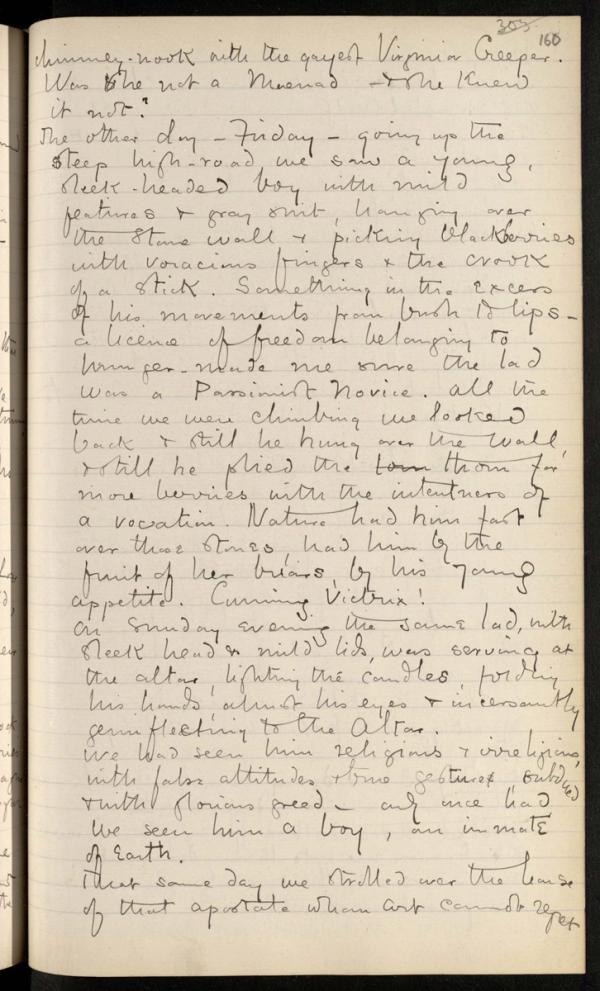 303
160
chimney-nook with the gayest Virginian Creeper.
Was she not a Maenad – & she knew
it not?
The other day – Friday – going up the
steep high-road we saw a young,
sleek-headed boy with mild
features & gray suit, hanging over
the stone wall & picking blackberries
with voracious fingers & the crook
of a stick. Something in the excess
of his movements from bush to lips –
a licence of freedom belonging to
hunger – made me sure the lad
was a Passionist Novice. All the
time we were climbing we looked
back & still he hung over the wall,
& still he plied the torn thorn for
more berries with the intentness of
a vocation. Nature had him fast
over those stones, had him by the
fruit of her briars, by his young
appetite. Cunning Victrix!
On Sunday evening the same lad, with
sleek head & mild lids, was serving at
the altar, lighting the candles, folding
his hands, almost his eyes & incessantly
genuflecting to the Altar.
We had seen him religious & irreligious,
with false attitudes & true gestures, subdued
& with glorious greed – only once had
we seen him a boy, an inmate
of Earth.
That same day we strolled over the house
of that apostate whom Art cannot regret